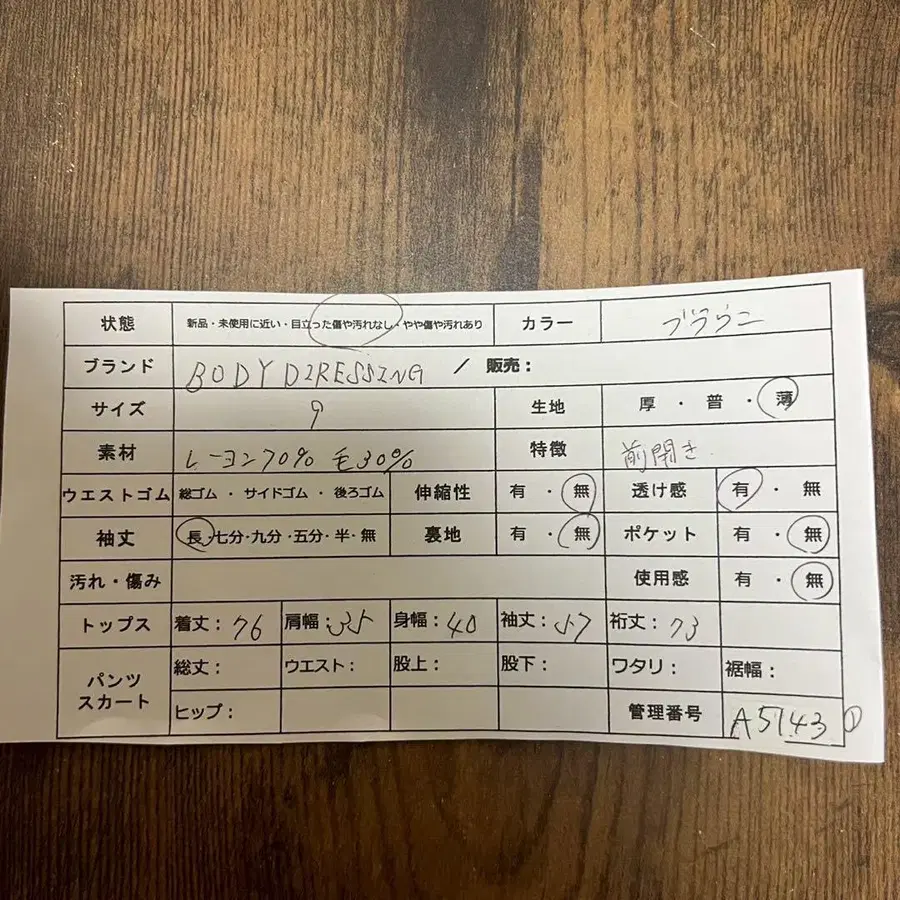 状態 新品・未使用に近い・目立った傷や汚れなし・やや傷や汚れあり カラー ブラウン
ブランド BODY DRESSING / 販売：
サイズ 9 生地 厚・普・薄
素材 レーヨン70% 毛30% 特徴 前開き
ウエストゴム 総ゴム・サイドゴム・後ろゴム 伸縮性 有・無 透け感 有・無
袖丈 長・七分・九分・五分・半・無 裏地 有・無 ポケット 有・無
汚れ・傷み 使用感 有・無
トップス 着丈：76 肩幅：35 身幅：40 袖丈：57 裄丈：73
パンツ スカート 総丈： ウエスト： 股上： 股下： ワタリ： 裾幅：
ヒップ： 管理番号 A5143 ①